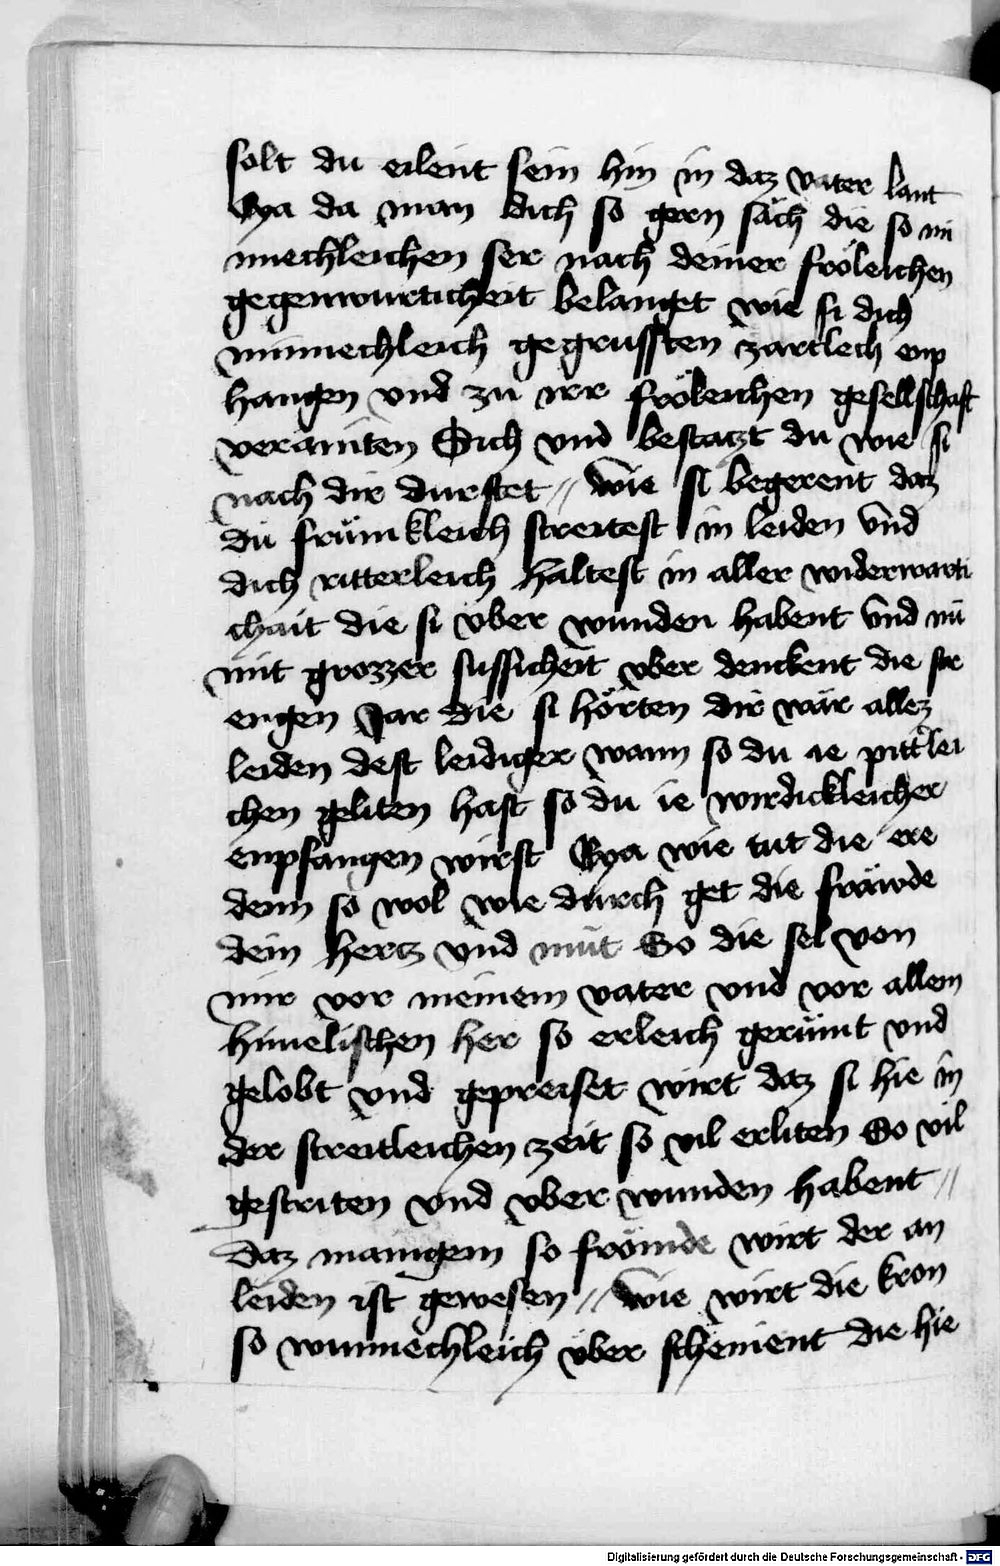 solt du eilent sein hin in daz vater lant
Eya da man dich so gern säch die so mi
nnechleichen ser nach deiner fröleichen
gegenwurticheit belanget wie si dich
minnechleich gegrussten zartlech enp
hangen vnd zu irr fröleichen gesellschaft
verainten Sich vnd bestatzt du wie si
nach dir durstet // wie si begerent daz
du frümkleich streitest in leiden vnd
dich ritterleich haltest in aller widerwarti
chait die si vber wunden habent vnd nu
mit grozzer sussicheit vber denckent die str
engen Jar die si hörten dir wär allez
leiden dest leidiger wann so du ie pittlei
chen geliten hast so du ie wirdickleicher
enpfangen wirst Eya wie tut die ere
denn so wol wie durch get die fräwde
dein hercz vnd mut So die sel von
mir vor meinem vater vnd vor allem
himelischen her so erleich gerümt vnd
gelobt vnd gepreiset wirt daz si hie in
der streitleichen zeit so vil erliten So vil
gestriten vnd vber wunden habent //
daz manigem so frömde wirt der an
leiden ist gewesen // wie wirt die kron
so wunnechleich über scheinent die hie
Digitalisierung gefördert durch die Deutsche Forschungsgemeinschaft - DFG